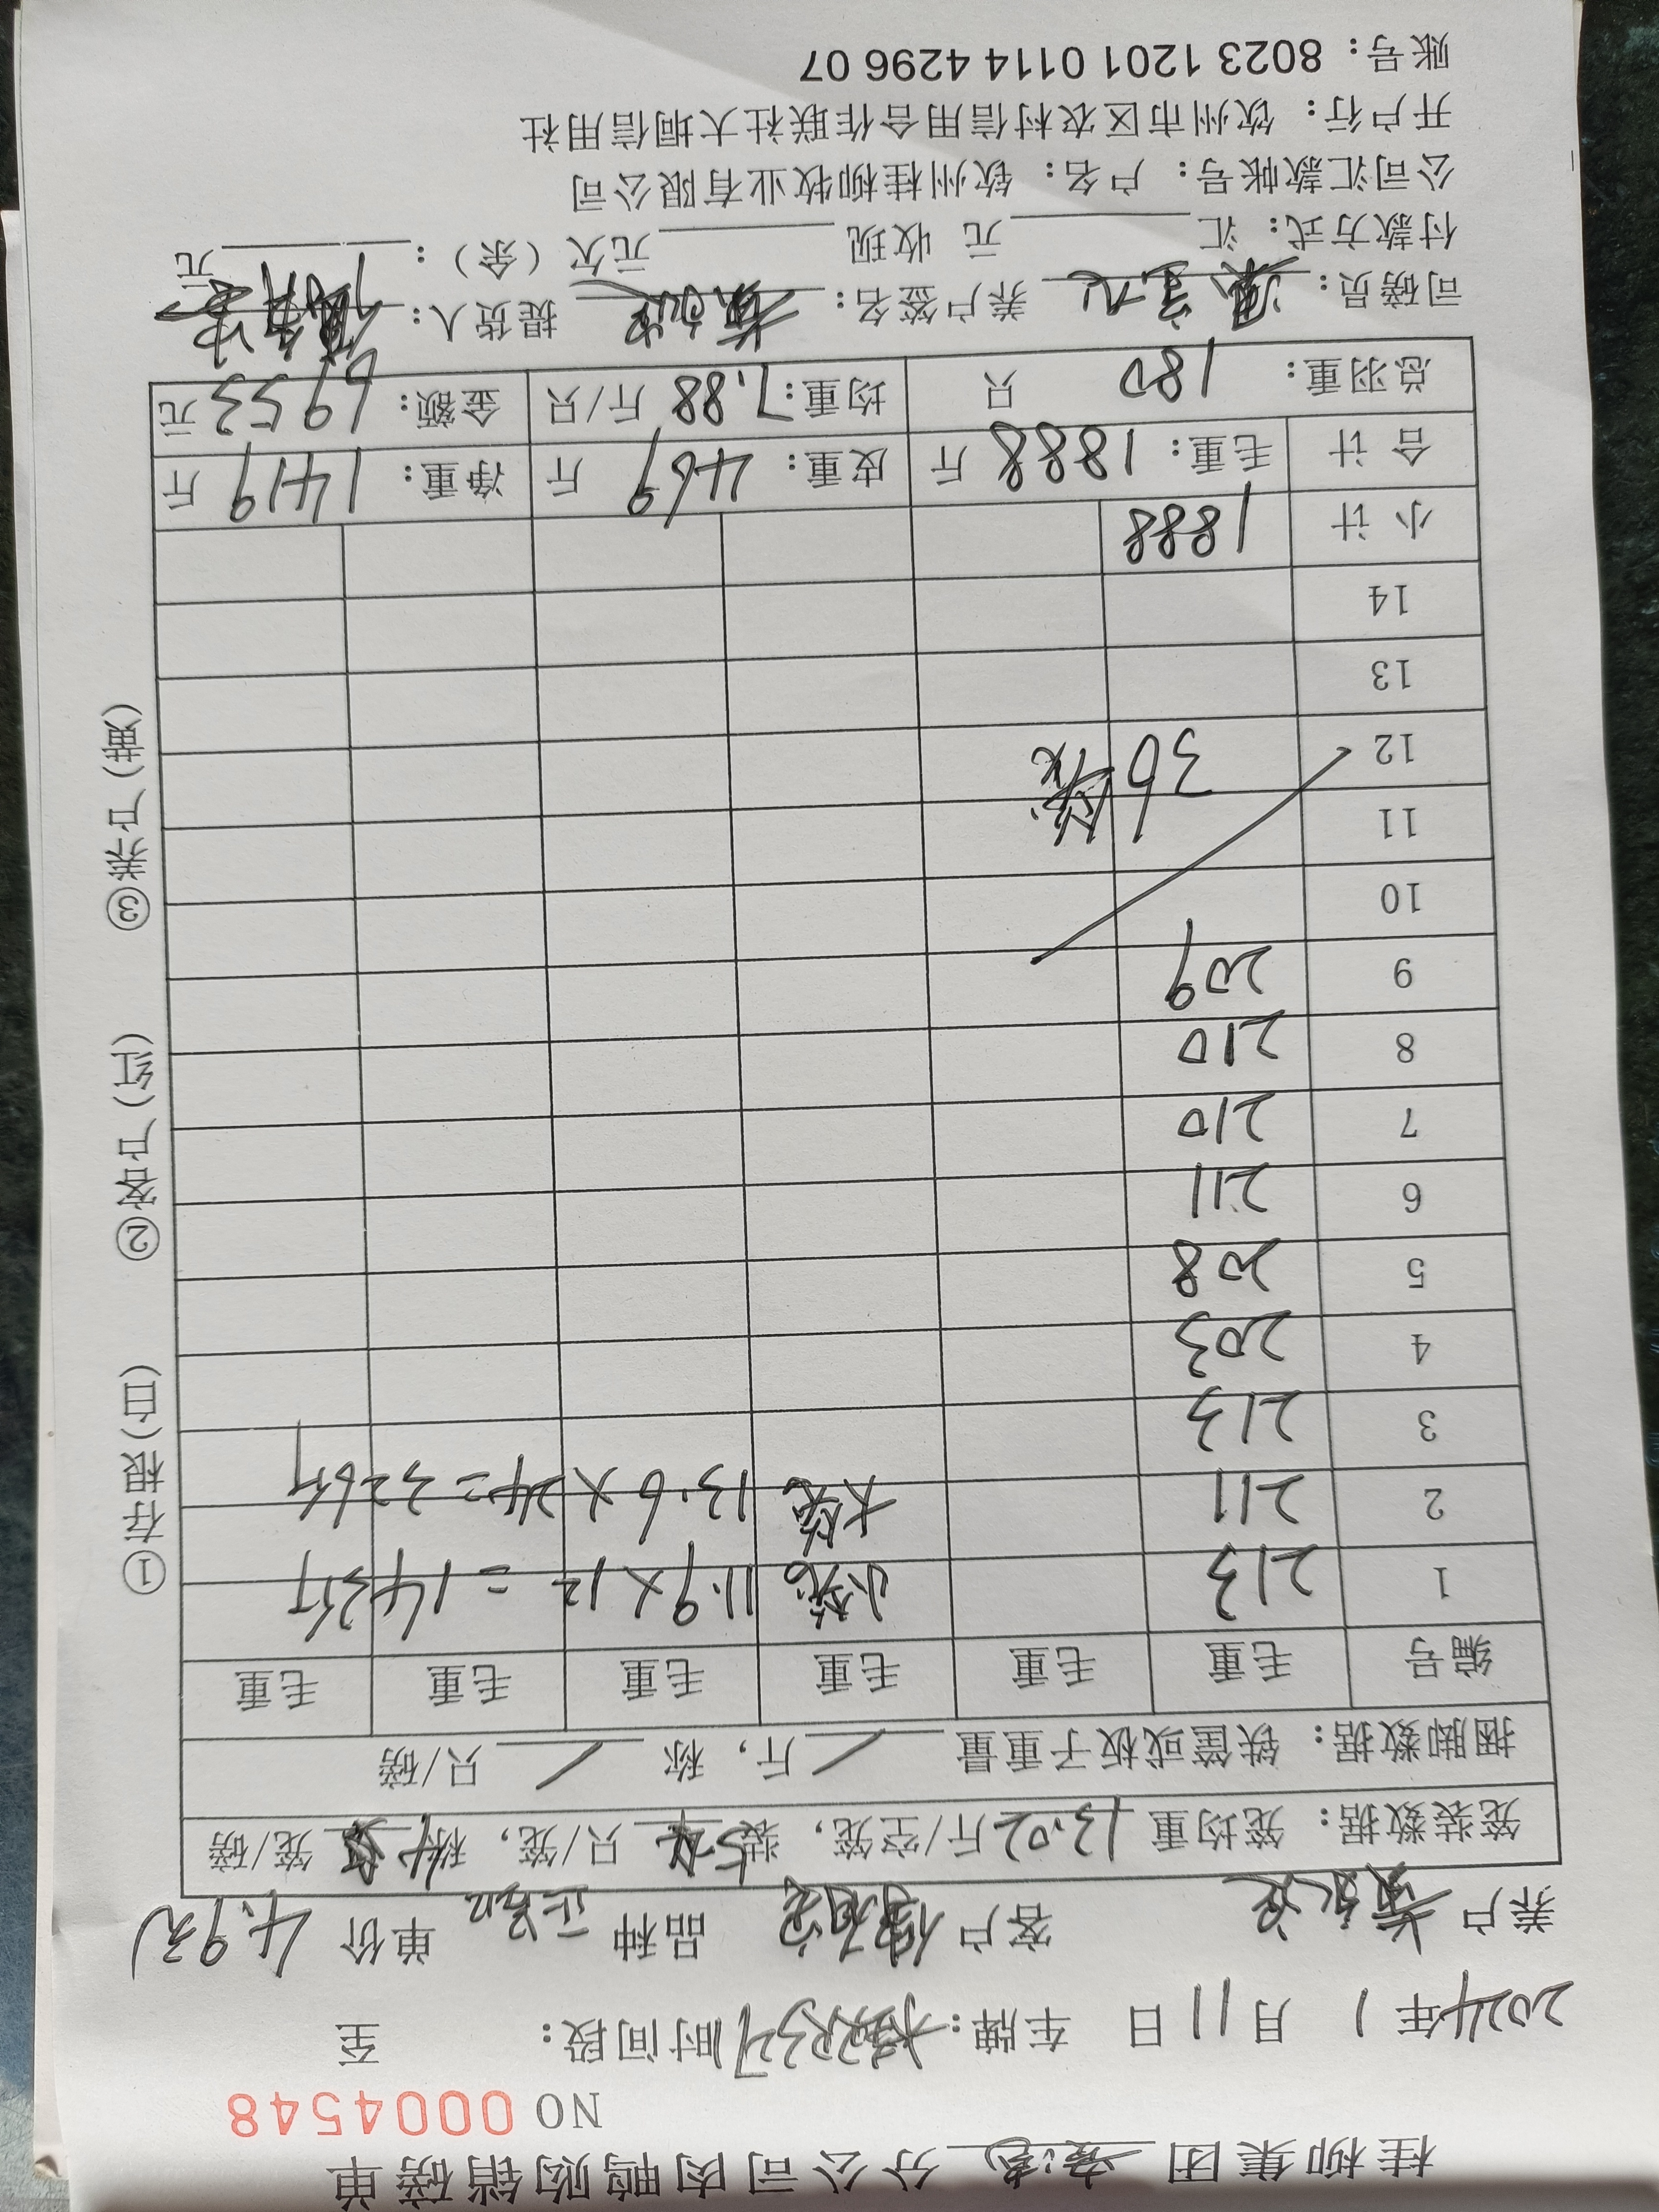 桂柳集团 分公司肉鸭购销磅单
NO 0004548
2024年 1 月 11 日 车牌： 时间段： 至
养户 黄 客户 品种 单价 4.9元
笼装数据：笼均重 13.02 斤/空笼，装 5 只/笼，称 4 笼/磅
捆脚数据：铁筐或板子重量 / 斤，称 / 只/磅
编号 毛重 毛重 毛重 毛重 毛重 毛重
1 213 小笼 11.9×12=143斤
2 211 大笼 13.6×24=326斤
3 213
4 203
5 208
6 211
7 210
8 210
9 209
10
11
12 36笼
13
14
小计 1888
合计 毛重：1888 斤 皮重：469 斤 净重：1419 斤
总羽重： 180 只 均重：7.88 斤/只 金额：6953 元
司磅员： 养户签名：黄 提货人：
付款方式：汇 元 收现 元欠（余）： 元
公司汇款帐号：户名：钦州桂柳牧业有限公司
开户行：钦州市区农村信用合作联社大垌信用社
账号：8023 1201 0114 4296 07
①存根(白) ②客户(红) ③养户(黄)